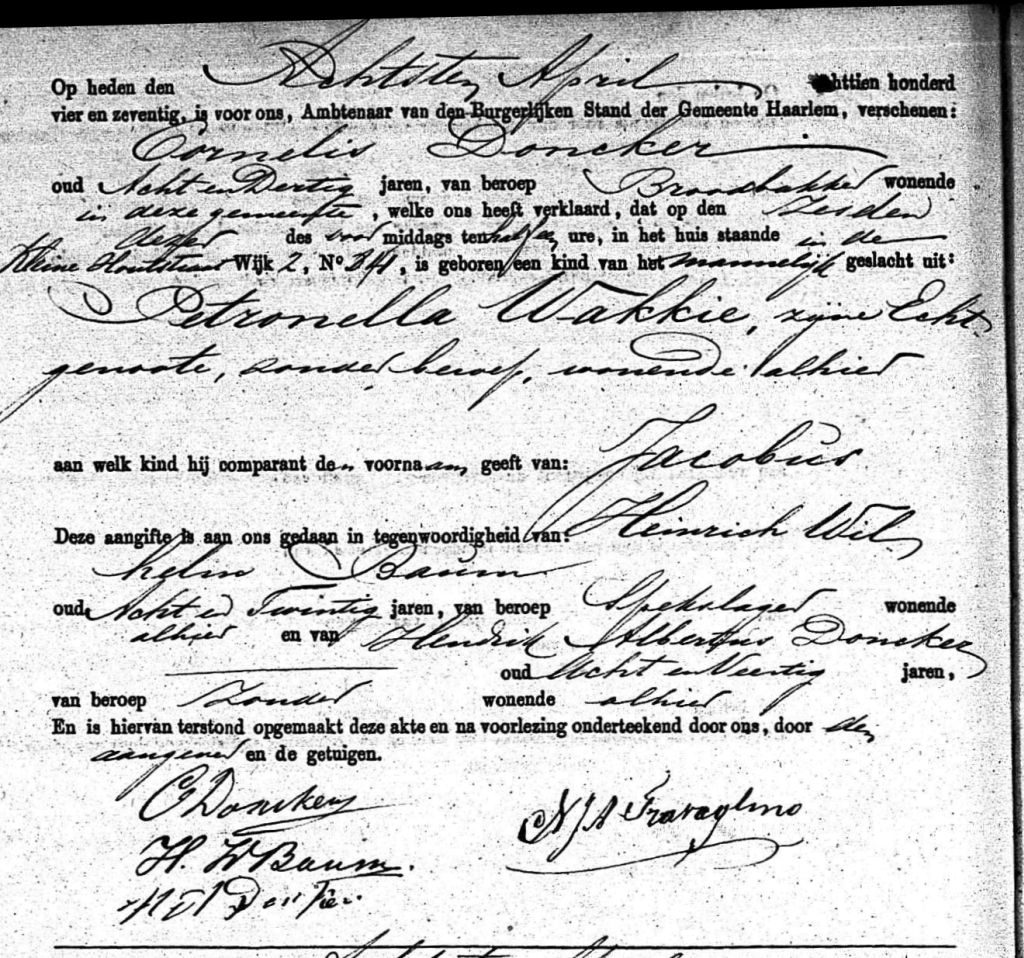 Op heden den Achtsten April achttien honderd
vier en zeventig, is voor ons, Ambtenaar van den Burgerlijken Stand der Gemeente Haarlem, verschenen:
Cornelis Doncker
oud Acht en Dertig jaren, van beroep Broodbakker wonende
in deze gemeente, welke ons heeft verklaard, dat op den zesden
dezer des voor middags ten half ure, in het huis staande in de
Kleine Houtstraat Wijk 2, No 341, is geboren een kind van het mannelijk geslacht uit:
Petronella Wakkie, zijne Echt-
genoote, zonder beroep, wonende alhier
aan welk kind hij comparant den voornaam geeft van: Jacobus
Deze aangifte is aan ons gedaan in tegenwoordigheid van: Heinrich Wil-
helm Baum
oud Acht en Twintig jaren, van beroep Spekslager wonende
alhier en van Hendrik Albertus Doncker
oud Acht en Veertig jaren,
van beroep Zonder wonende alhier
En is hiervan terstond opgemaakt deze akte en na voorlezing onderteekend door ons, door den
aangever en de getuigen.
C Doncker
NJA Travaglino
H. W Baum.